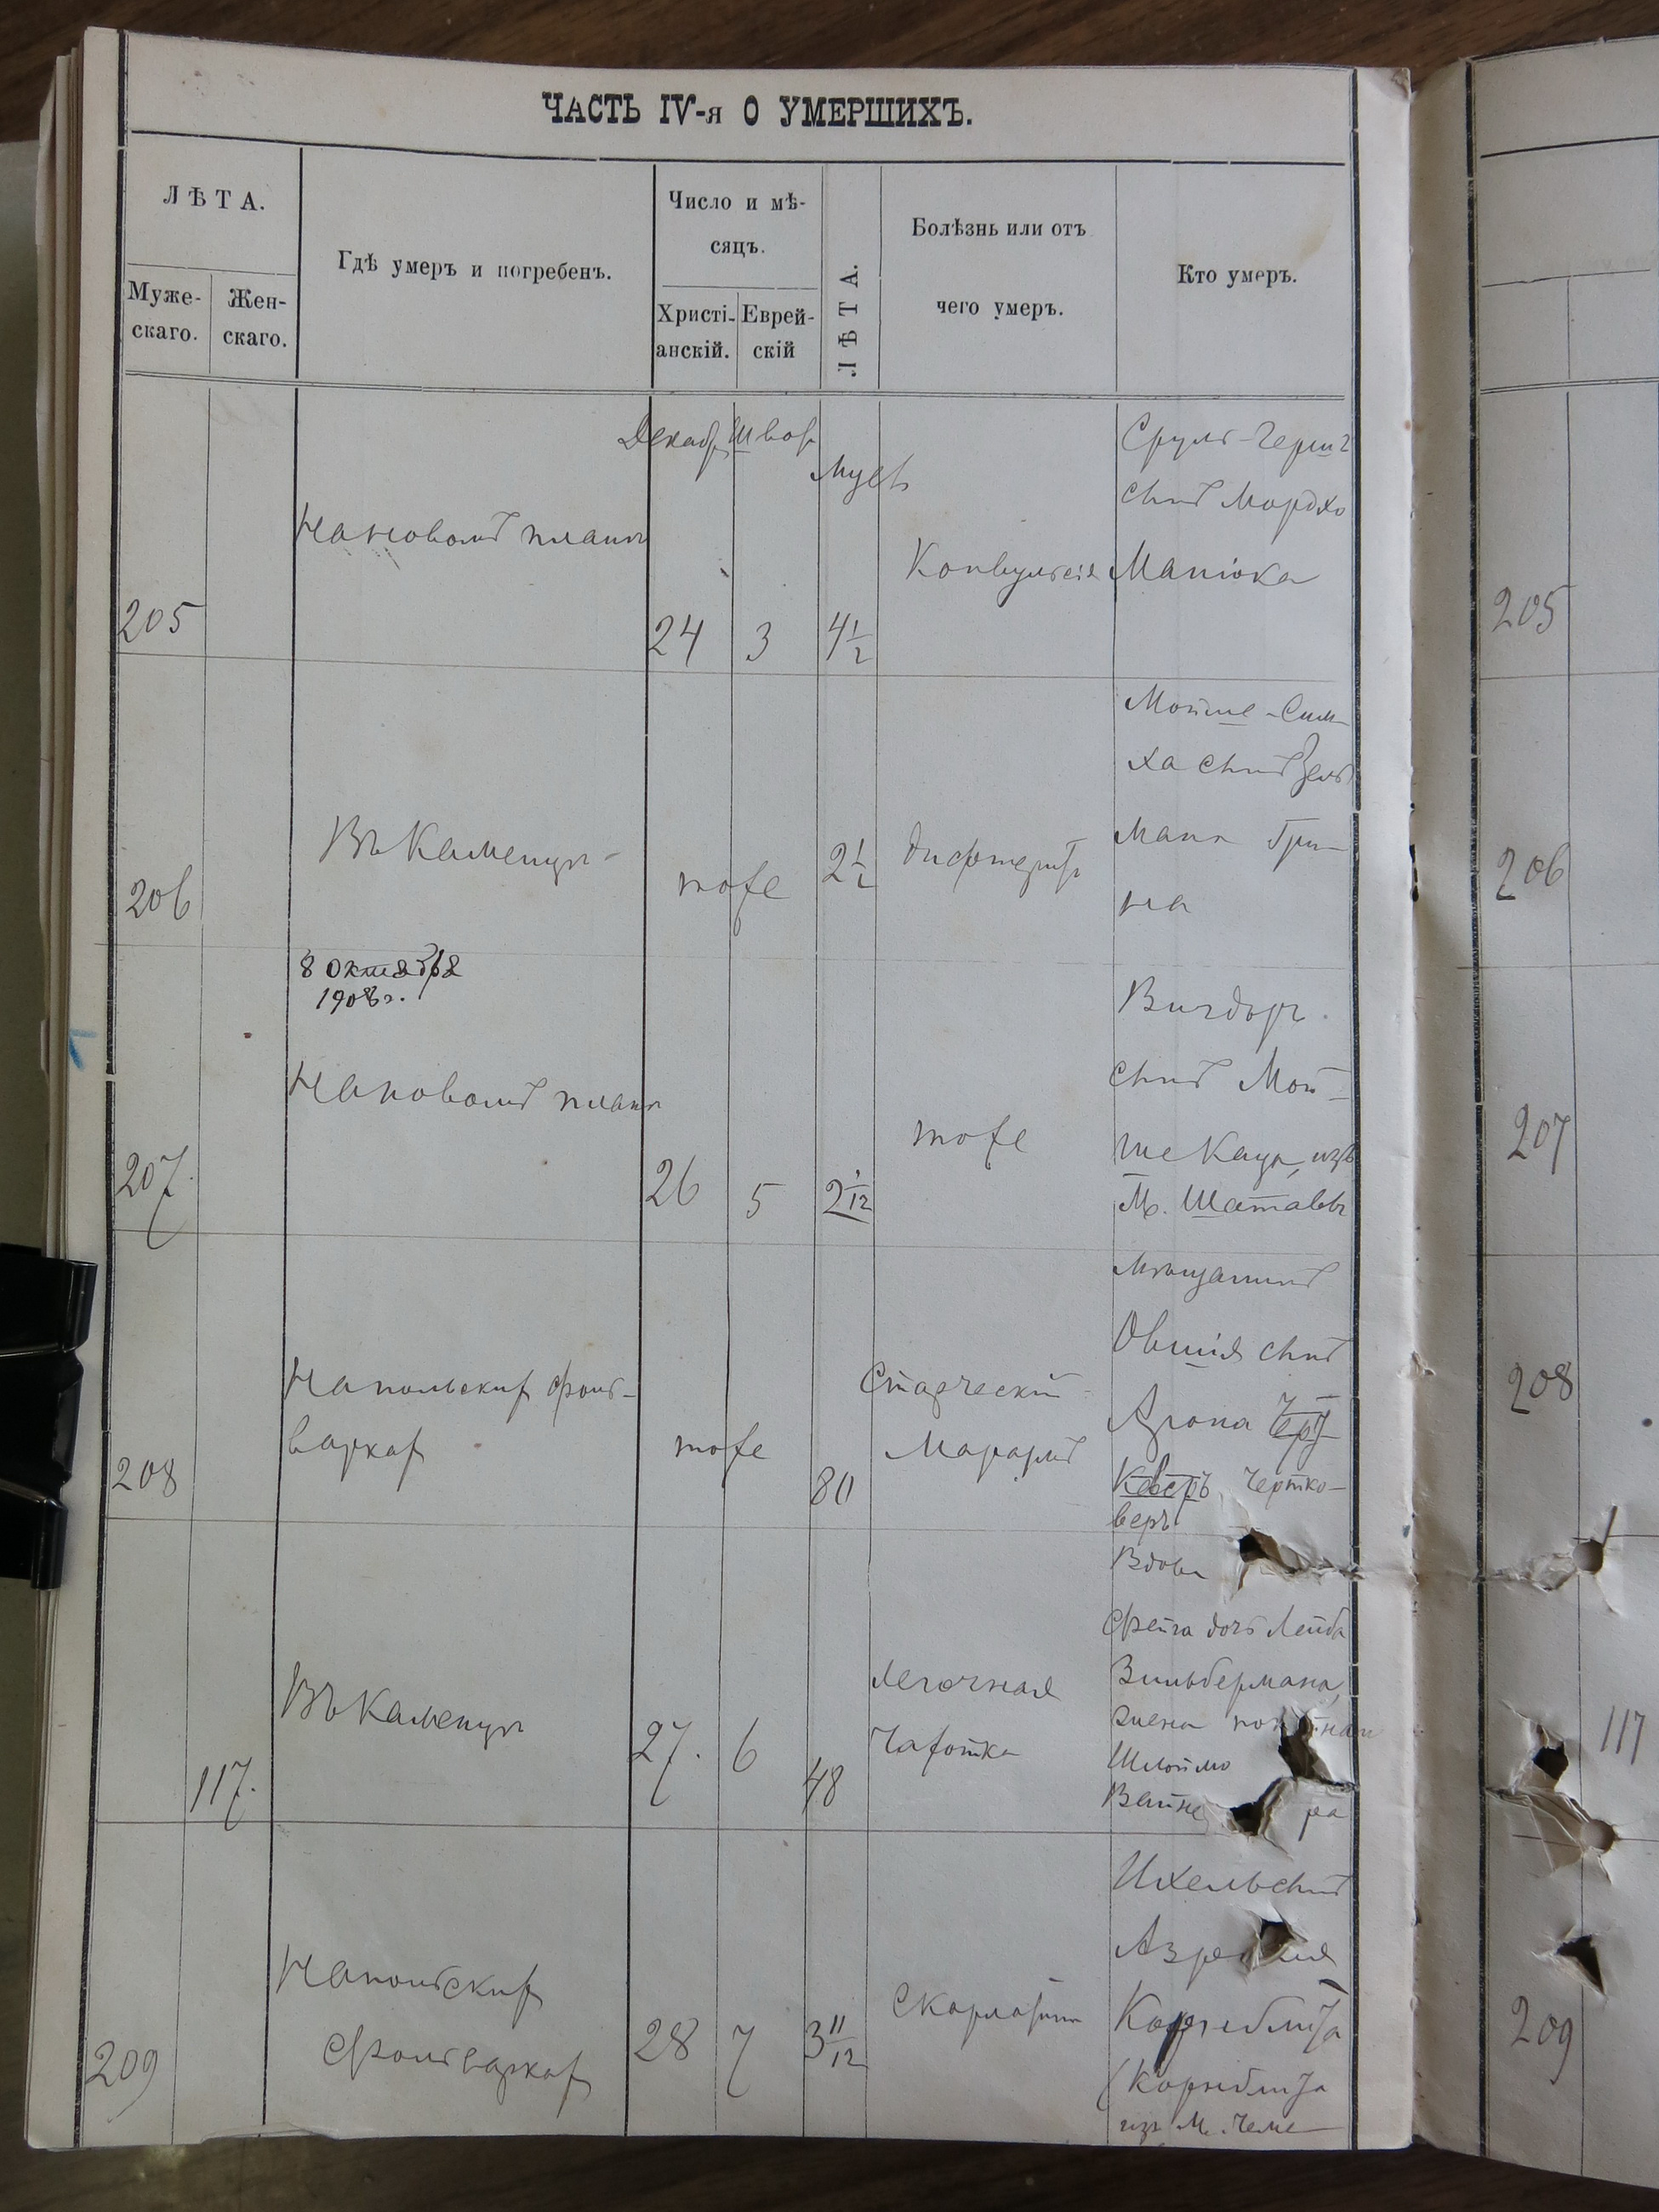 ЧАСТЬ IV-я О УМЕРШИХЪ.
ЛѢТА.
Муже-
скаго.
Жен-
скаго.
Гдѣ умеръ и погребенъ.
Число и мѣ-
сяцъ.
Христі-
анскій.
Еврей-
скій
ЛѢТА.
Болѣзнь или отъ
чего умеръ.
Кто умеръ.
205
На новомъ планѣ
Декабр
24
3
4 1/2
Конвульсія
Сруль-Герш
сынъ Мордко
Манюка
205
206
Въ Каменцѣ
тоже
2 1/2
дифтеритъ
Мойше-Сим-
ха сынъ Зель
мана Грин-
на
206
8 Октября
1908 г.
207.
На новомъ планѣ
26
5
2 1/12
тоже
Вигдоръ
сынъ Мой-
ше Кацъ, изъ
м. Шатавы
207
208
На польскихъ фоль-
варках
тоже
80
Старческій
Маразмъ
Мѣщанинъ
Овшія сынъ
Арона
Чертко-
веръ
208
117.
Въ Каменцѣ
27.
6
48
Легочная
Чахотка
Вдова
Фейга дочь Лейба
Зильбермана,
жена
Шлоймо
Вайне ра
117
209
На польских
Фольварках
28
7
3 11/12
Скарлатина
Ихель сынъ
Азреиля
Корнблита
(Корнблита
изъ м. Чеме-
209